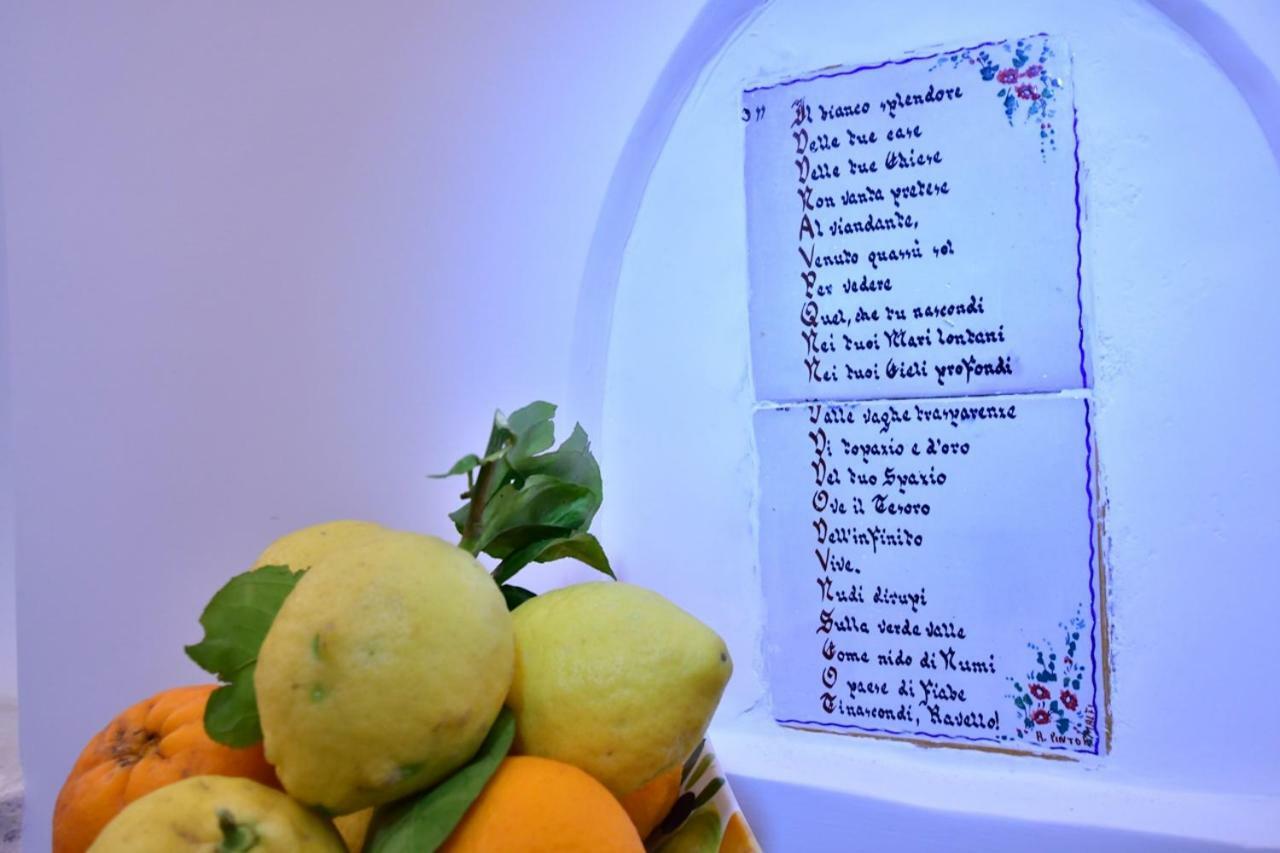 Il bianco splendore
Delle tue case
Delle tue Chiese
Non vanta pretese
Al viandante,
Venuto quassù sol
Per vedere
Quel, che tu nascondi
Nei tuoi Mari lontani
Nei tuoi Cieli profondi
Dalle vaghe trasparenze
Di topazio e d'oro
Del tuo Spazio
Ove il Tesoro
Dell'infinito
Vive.
Nudi dirupi
Sulla verde valle
Come nido di Numi
O paese di Fiabe
Ti nascondi, Ravello!